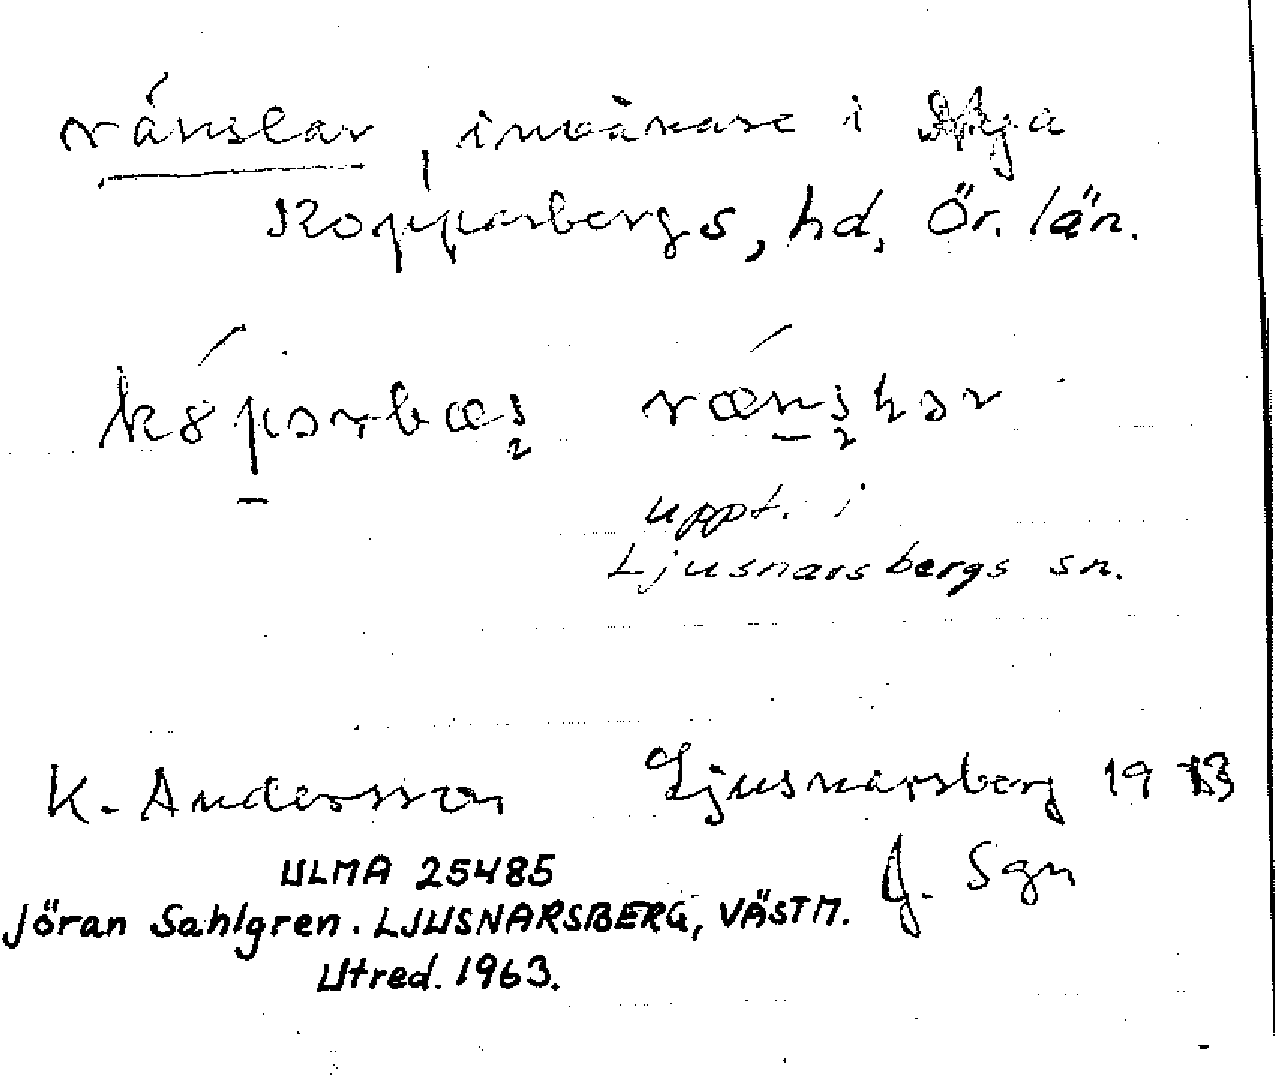 ränslar, invånare i
Kopparbergs, hd, Ör. län.
uppt. i
Ljusnarsbergs sn.
K. Andersson Ljusnarsberg 19
ULMA 25485 J. Sgn
Jöran Sahlgren. LJUSNARSBERG, VÄSTM.
Utred. 1963.